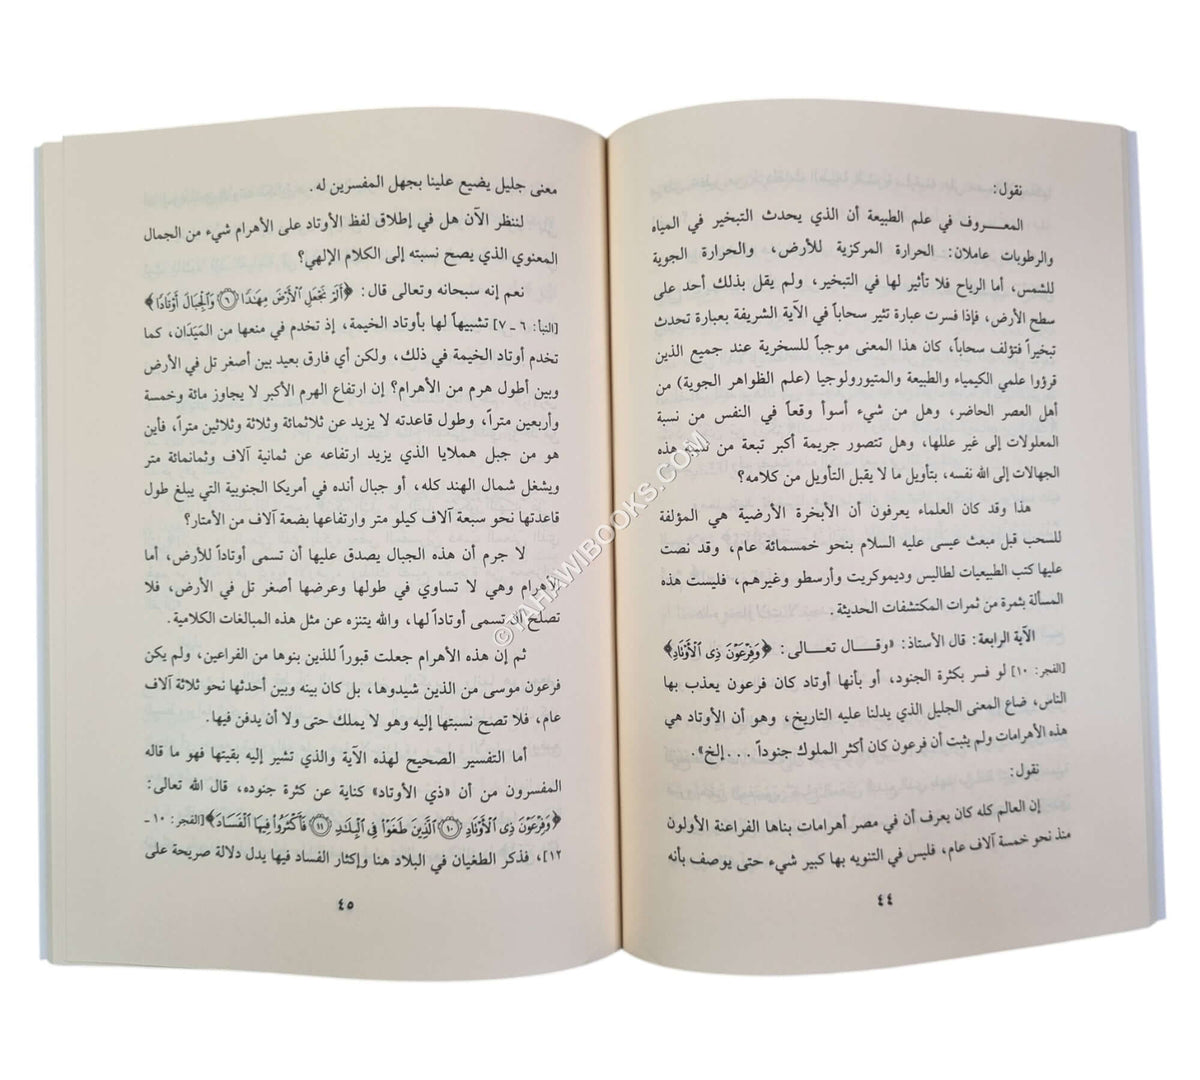 نقول:
المعـــروف في علم الطبيعة أن الذي يحدث التبخير في المياه
والرطوبات عاملان: الحرارة المركزية للأرض، والحرارة الجوية
للشمس، أما الرياح فلا تأثير لها في التبخير، ولم يقل بذلك أحد على
سطح الأرض، فإذا فسرت عبارة تثير سحاباً في الآية الشريفة بعبارة تحدث
تبخيراً فتؤلف سحاباً، كان هذا المعنى موجباً للسخرية عند جميع الذين
قرؤوا علمي الكيمياء والطبيعة والمتيورولوجيا (علم الظواهر الجوية) من
أهل العصر الحاضر، وهل من شيء أسوأ وقعاً في النفس من نسبة
المعلولات إلى غير عللها، وهل تتصور جريمة أكبر تبعة من نسبة هذه
الجهالات إلى الله نفسه، بتأويل ما لا يقبل التأويل من كلامه؟
هذا وقد كان العلماء يعرفون أن الأبخرة الأرضية هي المؤلفة
للسحب قبل مبعث عيسى عليه السلام بنحو خمسمائة عام، وقد نصت
عليها كتب الطبيعيات لطاليس وديموكريت وأرسطو وغيرهم، فليست هذه
المسألة بثمرة من ثمرات المكتشفات الحديثة.
الآية الرابعة: قال الأستاذ: «وقـــال تعـــالى: ﴿وَفِرْعَوْنَ ذِى ٱلْأَوْتَادِ﴾
[الفجر: ١٠] لو فسر بكثرة الجنود، أو بأنها أوتاد كان فرعون يعذب بها
الناس، ضاع المعنى الجليل الذي يدلنا عليه التاريخ، وهو أن الأوتاد هي
هذه الأهرامات ولم يثبت أن فرعون كان أكثر الملوك جنوداً ...إلخ».
نقول:
إن العالم كله كان يعرف أن في مصر أهرامات بناها الفراعنة الأولون
منذ نحو خمسة آلاف عام، فليس في التنويه بها كبير شيء حتى يوصف بأنه
٤٤
معنى جليل يضيع علينا بجهل المفسرين له.
لننظر الآن هل في إطلاق لفظ الأوتاد على الأهرام شيء من الجمال
المعنوي الذي يصح نسبته إلى الكلام الإلهي؟
نعم إنه سبحانه وتعالى قال: ﴿أَلَمْ نَجْعَلِ ٱلْأَرْضَ مِهَـٰدًا ٦ وَٱلْجِبَالَ أَوْتَادًا﴾
[النبأ: ٦ ـ ٧] تشبيهاً لها بأوتاد الخيمة، إذ تخدم في منعها من المَيَدَان، كما
تخدم أوتاد الخيمة في ذلك، ولكن أي فارق بعيد بين أصغر تل في الأرض
وبين أطول هرم من الأهرام؟ إن ارتفاع الهرم الأكبر لا يجاوز مائة وخمسة
وأربعين متراً، وطول قاعدته لا يزيد عن ثلاثمائة وثلاثة وثلاثين متراً، فأين
هو من جبل هملايا الذي يزيد ارتفاعه عن ثمانية آلاف وثمانمائة متر
ويشغل شمال الهند كله، أو جبال أنده في أمريكا الجنوبية التي يبلغ طول
قاعدتها نحو سبعة آلاف كيلو متر وارتفاعها بضعة آلاف من الأمتار؟
لا جرم أن هذه الجبال يصدق عليها أن تسمى أوتاداً للأرض، أما
الأهرام وهي لا تساوي في طولها وعرضها أصغر تل في الأرض، فلا
تصلح أن تسمى أوتاداً لها، والله يتنزه عن مثل هذه المبالغات الكلامية.
ثم إن هذه الأهرام جعلت قبوراً للذين بنوها من الفراعين، ولم يكن
فرعون موسى من الذين شيدوها، بل كان بينه وبين أحدثها نحو ثلاثة آلاف
عام، فلا تصح نسبتها إليه وهو لا يملك حتى ولا أن يدفن فيها.
أما التفسير الصحيح لهذه الآية والذي تشير إليه بقيتها فهو ما قاله
المفسرون من أن «ذي الأوتاد» كناية عن كثرة جنوده، قال الله تعالى:
﴿وَفِرْعَوْنَ ذِى ٱلْأَوْتَادِ ١٠ ٱلَّذِينَ طَغَوْا۟ فِى ٱلْبِلَـٰدِ ١١ فَأَكْثَرُوا۟ فِيهَا ٱلْفَسَادَ﴾ [الفجر: ١٠ ـ
١٢]، فذكر الطغيان في البلاد هنا وإكثار الفساد فيها يدل دلالة صريحة على
٤٥
©TAHAWIBOOKS.COM